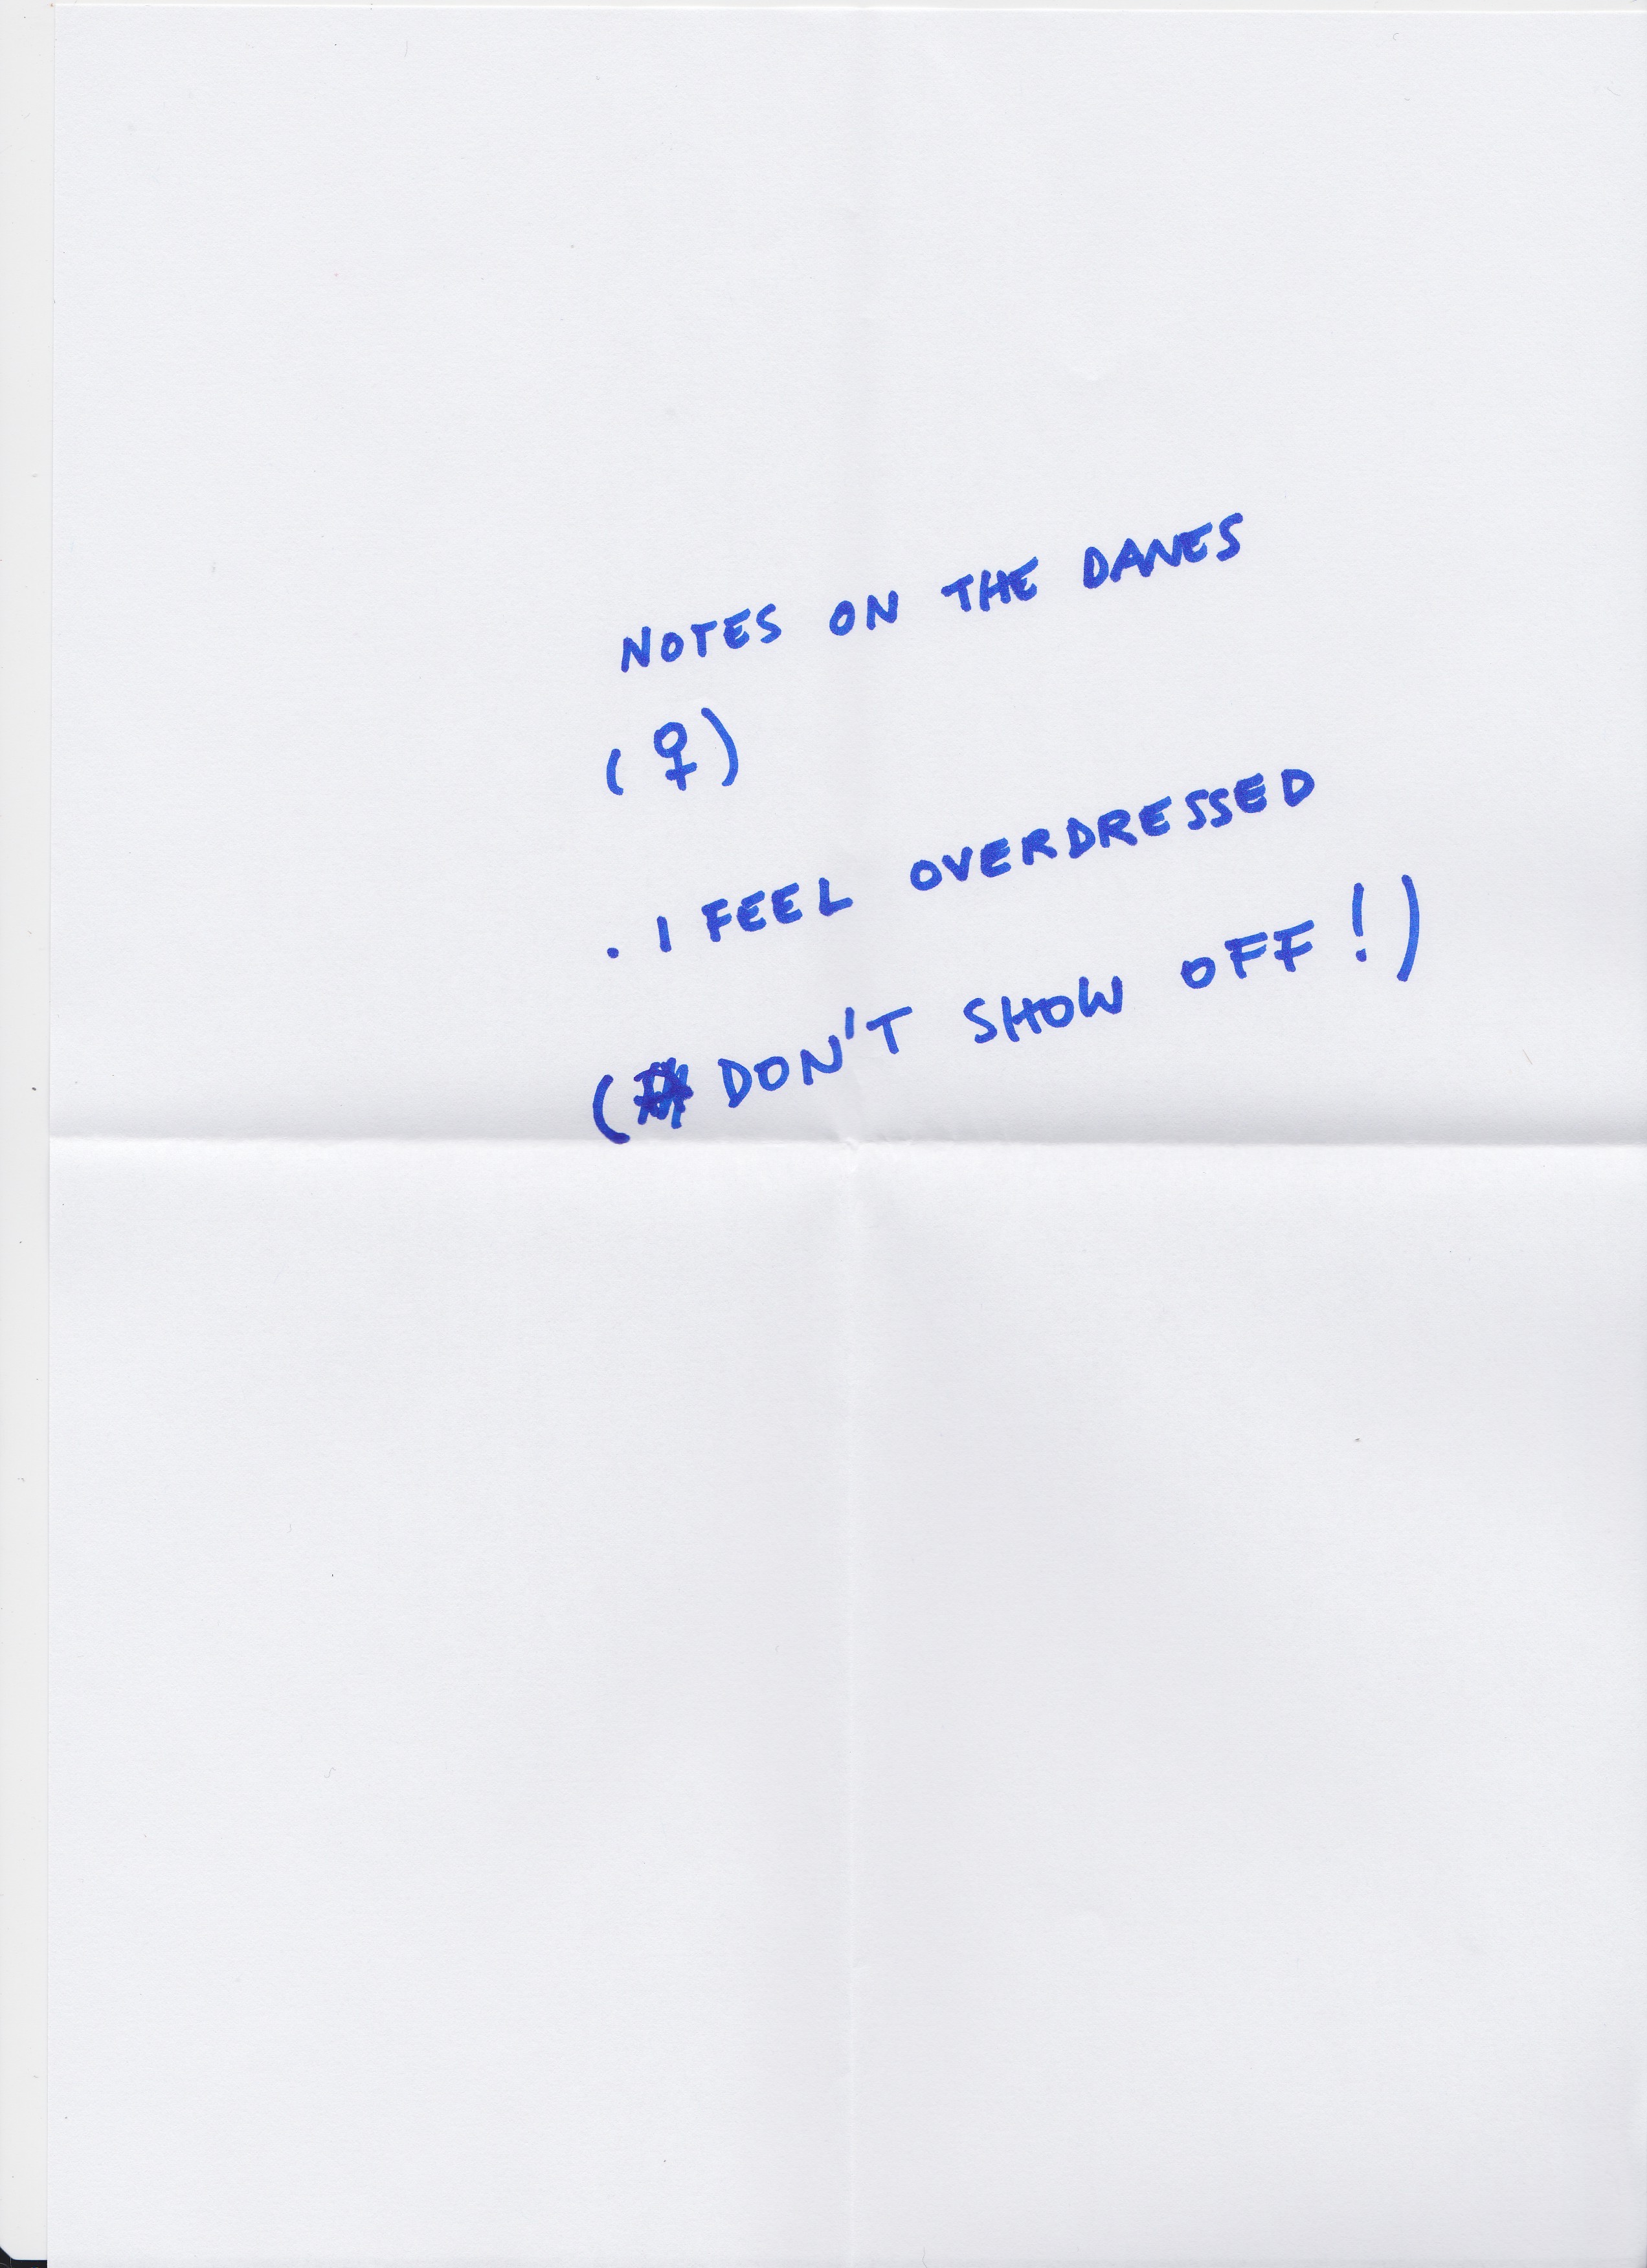 NOTES ON THE DANES
(♀)
. I FEEL OVERDRESSED
( DON'T SHOW OFF!)